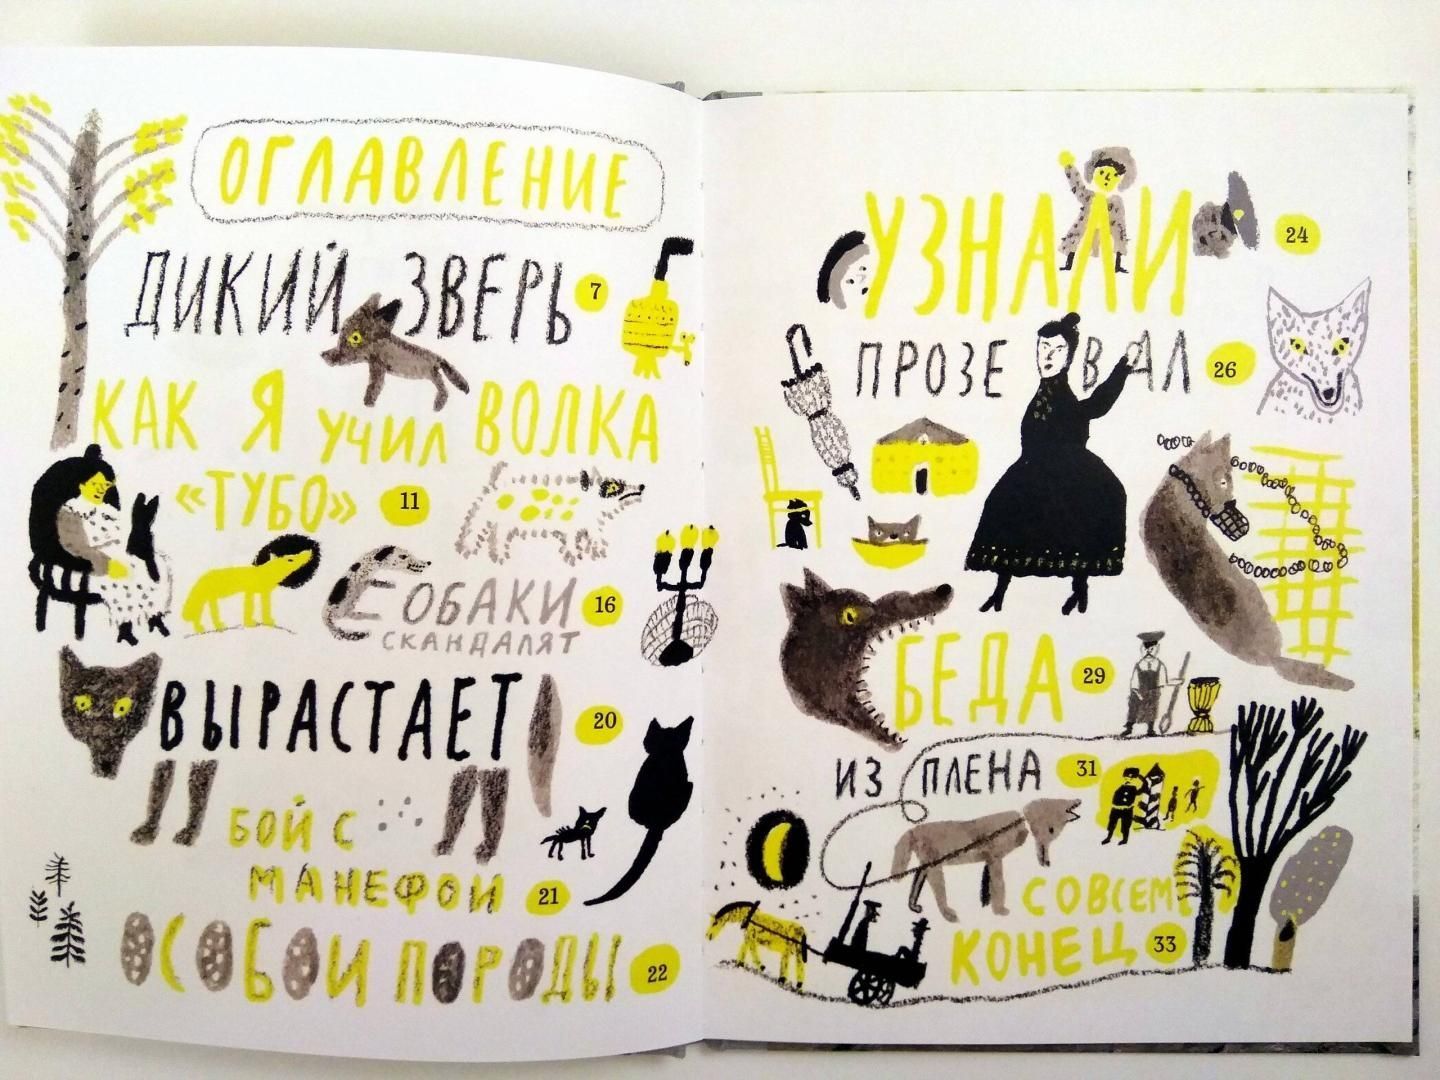 ОГЛАВЛЕНИЕ
ДИКИЙ ЗВЕРЬ 7
КАК Я УЧИЛ ВОЛКА
«ТУБО» 11
СОБАКИ 16
СКАНДАЛЯТ
ВЫРАСТАЕТ 20
БОЙ С
МАНЕФОЙ 21
ОСОБОЙ ПОРОДЫ 22
УЗНАЛИ 24
ПРОЗЕВАЛ 26
БЕДА 29
ИЗ ПЛЕНА 31
СОВСЕМ
КОНЕЦ 33